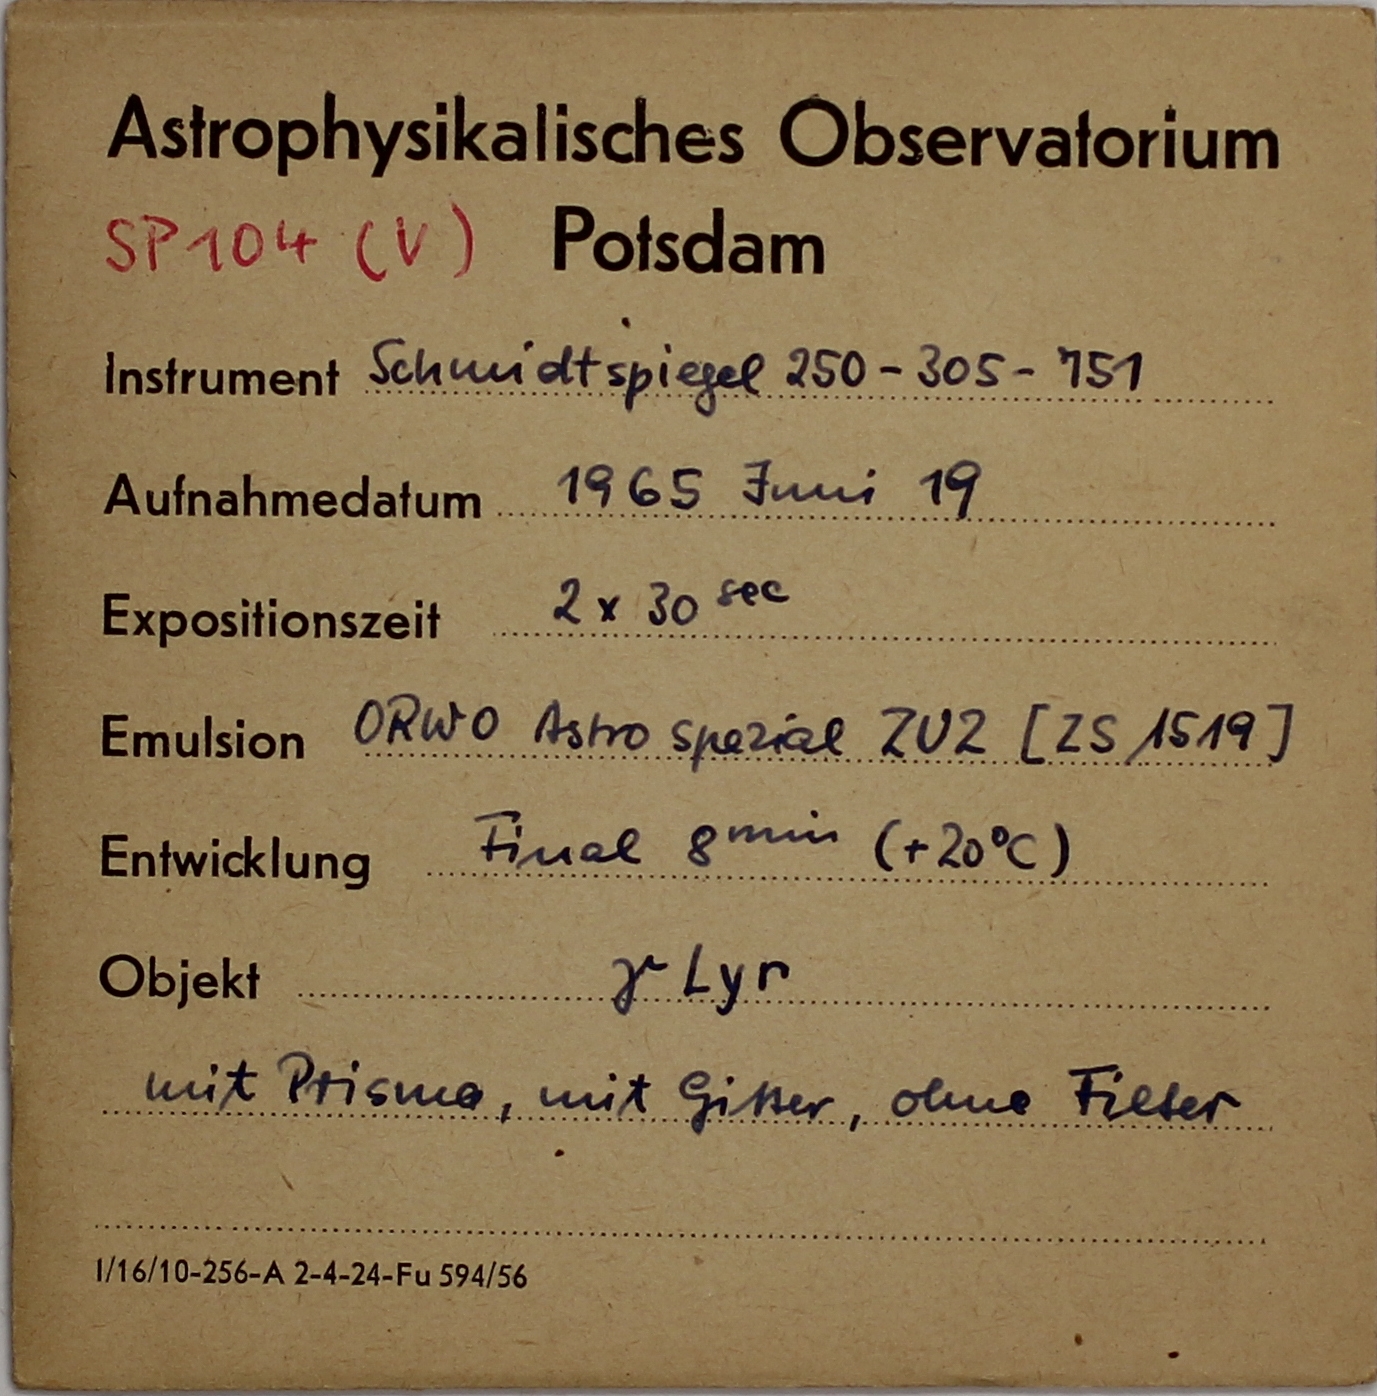 Astrophysikalisches Observatorium
SP 104 (V) Potsdam
Instrument Schmidtspiegel 250-305-751
Aufnahmedatum 1965 Juni 19
Expositionszeit 2 x 30 sec
Emulsion ORWO Astro spezial ZU2 [ZS 1519]
Entwicklung Final 8 min (+20°C)
Objekt γ Lyr
mit Prisma, mit Gitter, ohne Filter
I/16/10-256-A 2-4-24-Fu 594/56